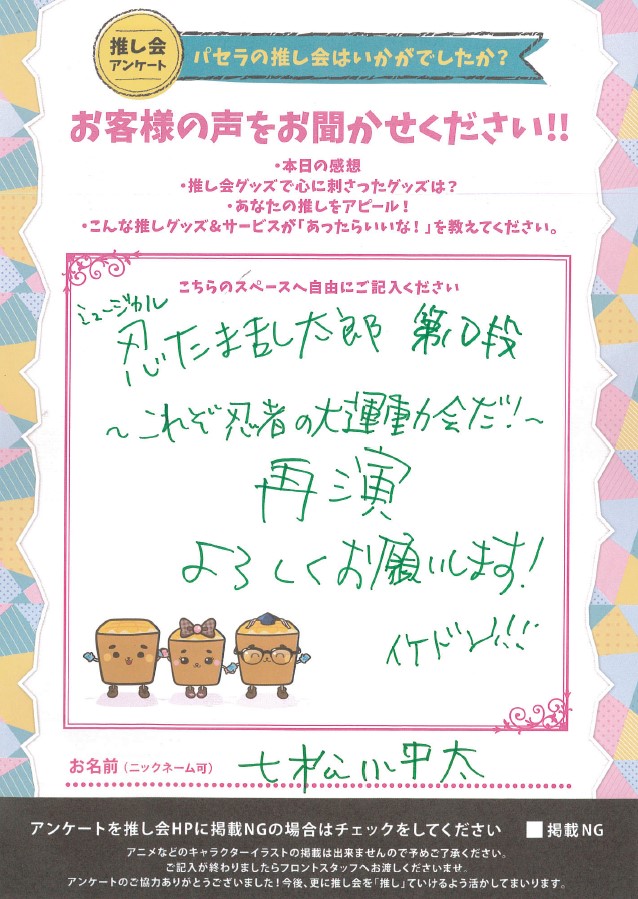 推し会
アンケート
パセラの推し会はいかがでしたか？
お客様の声をお聞かせください!!
・本日の感想
・推し会グッズで心に刺さったグッズは？
・あなたの推しをアピール！
・こんな推しグッズ&サービスが「あったらいいな！」を教えてください。
こちらのスペースへ自由にご記入ください
ミュージカル
忍たま乱太郎 第10段
～これぞ忍者の大運動会だ!～
再演
よろしくお願いします!
イケドン!!!
お名前（ニックネーム可） 七松小平太
アンケートを推し会HPに掲載NGの場合はチェックをしてください ■掲載NG
アニメなどのキャラクターイラストの掲載は出来ませんので予めご了承ください。
ご記入が終わりましたらフロントスタッフへお渡しくださいませ。
アンケートのご協力ありがとうございました！今後、更に推し会を「推し」ていけるよう活かしてまいります。